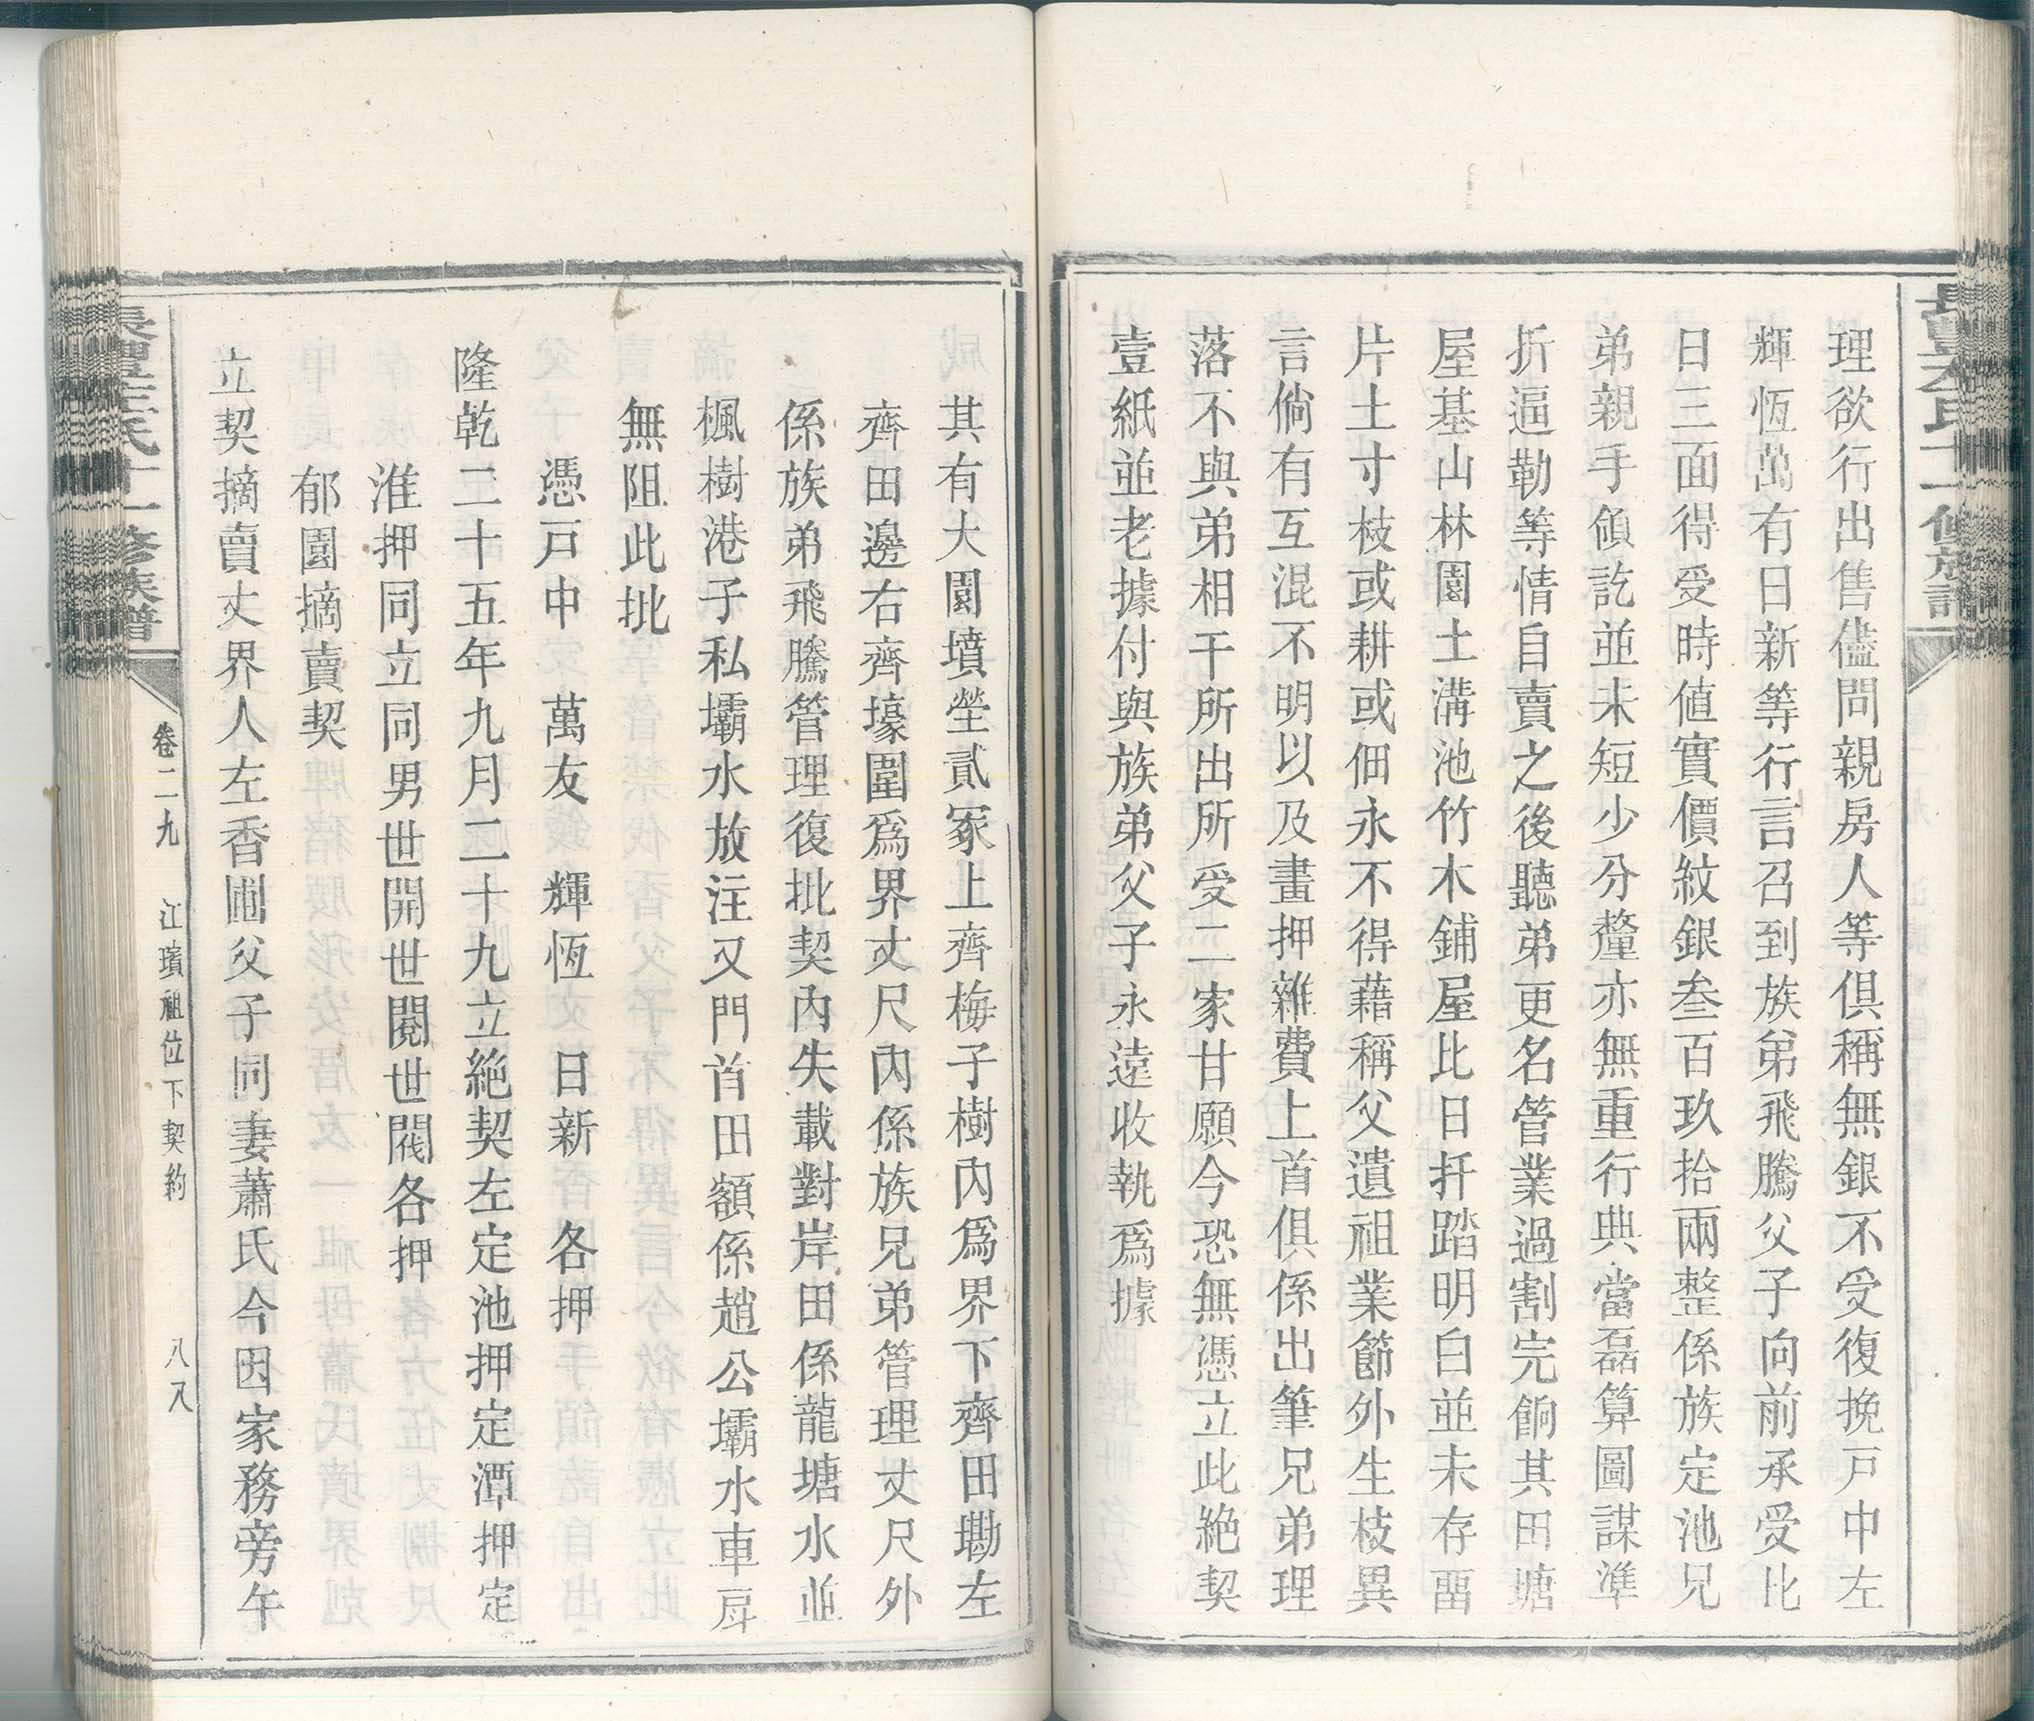 理欲行出售儘問親房人等俱稱無銀不受復挽戸中左
輝恆萬有日新等行言召到族弟飛騰父子向前承受比
日三面得受時値實價紋銀叁百玖拾兩整係族定池兄
弟親手領訖並未短少分釐亦無重行典當磊算圖謀準
折逼勒等情自賣之後聽弟更名管業過割完餉其田塘
屋基山林園土溝池竹木鋪屋比日扦踏明白並未存畱
片土寸枝或耕或佃永不得藉稱父遺祖業節外生枝異
言倘有互混不明以及畫押雜費上首俱係出筆兄弟理
落不與弟相干所出所受二家甘願今恐無憑立此絶契
壹紙並老據付與族弟父子永遠收執爲據
其有大園墳塋貳冢上齊梅子樹內爲界下齊田墈左
齊田邊右齊壕圍爲界丈尺內係族兄弟管理丈尺外
係族弟飛騰管理復批契內失載對岸田係龍塘水並
楓樹港子私壩水放注又門首田額係趙公壩水車戽
無阻此批
憑戸中　萬友　輝恆　日新　各押
隆乾二十五年九月二十九立絶契左定池押定潭押定
淮押同立同男世開世閱世閥各押
郁園摘賣契
立契摘賣丈界人左香圃父子同妻蕭氏今因家務旁午
長豐左氏十一修族譜
卷二九　江璸祖位下契約　八八